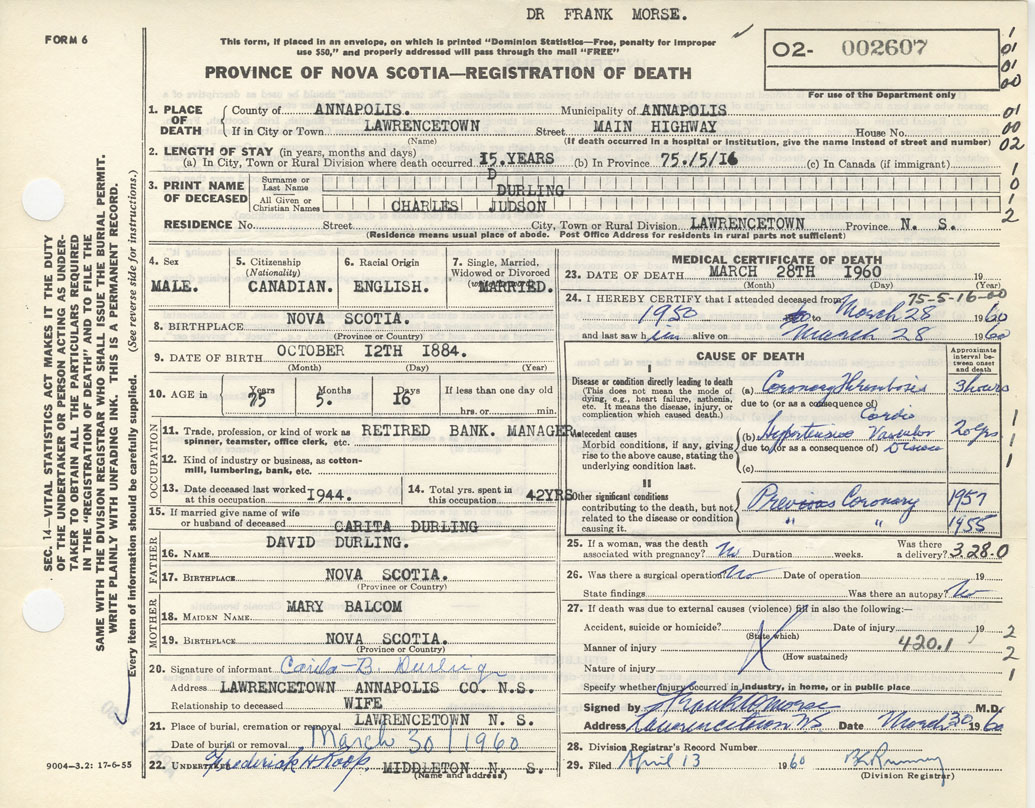 DR FRANK MORSE.
FORM 6
This form, if placed in an envelope, on which is printed "Dominion Statistics—Free, penalty for improper
use $50," and properly addressed will pass through the mail "FREE"
PROVINCE OF NOVA SCOTIA—REGISTRATION OF DEATH
02- 002607
For use of the Department only
1
01
01
00
01
00
02
1
0
1
2
SEC. 14—VITAL STATISTICS ACT MAKES IT THE DUTY
OF THE UNDERTAKER OR PERSON ACTING AS UNDER-
TAKER TO OBTAIN ALL THE PARTICULARS REQUIRED
IN THE "REGISTRATION OF DEATH" AND TO FILE THE
SAME WITH THE DIVISION REGISTRAR WHO SHALL ISSUE THE BURIAL PERMIT.
WRITE PLAINLY WITH UNFADING INK. THIS IS A PERMANENT RECORD.
Every item of information should be carefully supplied. (See reverse side for instructions.)
1. PLACE OF DEATH
County of ANNAPOLIS. Municipality of ANNAPOLIS
If in City or Town LAWRENCETOWN Street MAIN HIGHWAY House No.
(Name) (If death occurred in a hospital or institution, give the name instead of street and number)
2. LENGTH OF STAY (in years, months and days)
(a) In City, Town or Rural Division where death occurred 15.YEARS (b) In Province 75./5/16 (c) In Canada (if immigrant)
3. PRINT NAME OF DECEASED
Surname or Last Name D DURLING
All Given or Christian Names CHARLES JUDSON
RESIDENCE No. Street City, Town or Rural Division LAWRENCETOWN Province N. S.
(Residence means usual place of abode. Post Office Address for residents in rural parts not sufficient)
4. Sex
MALE.
5. Citizenship
(Nationality)
CANADIAN.
6. Racial Origin
ENGLISH.
7. Single, Married,
Widowed or Divorced
MARRIED.
8. BIRTHPLACE NOVA SCOTIA.
(Province or Country)
9. DATE OF BIRTH OCTOBER 12TH 1884.
(Month) (Day) (Year)
10. AGE in Years 75 Months 5. Days 16 If less than one day old
hrs. or min.
OCCUPATION
11. Trade, profession, or kind of work as RETIRED BANK. MANAGER.
spinner, teamster, office clerk, etc.
12. Kind of industry or business, as cotton-
mill, lumbering, bank, etc.
13. Date deceased last worked
at this occupation 1944.
14. Total yrs. spent in
this occupation 42YRS
15. If married give name of wife
or husband of deceased CARITA DURLING
FATHER
16. NAME DAVID DURLING.
17. BIRTHPLACE NOVA SCOTIA.
(Province or Country)
MOTHER
18. MAIDEN NAME MARY BALCOM
19. BIRTHPLACE NOVA SCOTIA.
(Province or Country)
20. Signature of informant Carita B. Durling
Address LAWRENCETOWN ANNAPOLIS CO. N.S.
Relationship to deceased WIFE
21. Place of burial, cremation or removal LAWRENCETOWN N. S.
Date of burial or removal March 30/1960
22. UNDERTAKER Frederick H Roop MIDDLETON N. S.
(Name and address)
9004—3.2: 17-6-55
MEDICAL CERTIFICATE OF DEATH
23. DATE OF DEATH MARCH 28TH 1960 19
(Month) (Day) (Year)
75-5-16-00
24. I HEREBY CERTIFY that I attended deceased from
1950 to March 28 1960
and last saw him alive on March 28 1960
CAUSE OF DEATH
Approximate
interval be-
tween onset
and death
I
Disease or condition directly leading to death
(This does not mean the mode of
dying, e.g., heart failure, asthenia,
etc. It means the disease, injury, or
complication which caused death.)
(a) Coronary Thrombosis 3 hours
due to (or as a consequence of)
Antecedent causes
Morbid conditions, if any, giving
rise to the above cause, stating the
underlying condition last.
(b) Hypertensive Cardio Vascular Disease 20 yrs
due to (or as a consequence of)
(c)
1
1
1
II
Other significant conditions
contributing to the death, but not
related to the disease or condition
causing it.
Previous Coronary 1957
" " 1955
25. If a woman, was the death
associated with pregnancy? No Duration weeks. Was there
a delivery? 3.28.0
26. Was there a surgical operation No Date of operation 19
State findings Was there an autopsy? No
27. If death was due to external causes (violence) fill in also the following:—
Accident, suicide or homicide? Date of injury 19 2
(State which)
Manner of injury 420.1 2
(How sustained)
Nature of injury 1
Specify whether injury occurred in industry, in home, or in public place
Signed by Frank W Morse M.D.
Address Lawrencetown NS Date March 30 1960
28. Division Registrar's Record Number
29. Filed April 13 1960
(Division Registrar)